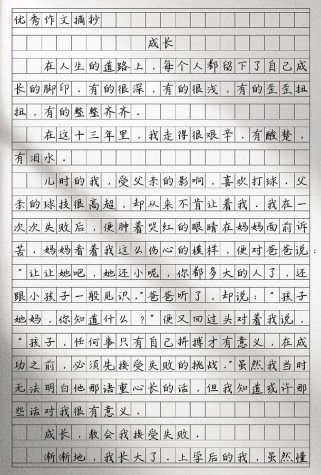 优秀作文摘抄
成长
在人生的道路上，每个人都留下了自己成
长的脚印．有的很深，有的很浅，有的歪歪扭
扭，有的整整齐齐．
在这十三年里，我走得很艰辛，有酸楚，
有泪水．
儿时的我，受父亲的影响，喜欢打球．父
亲的球技很高超，却从来不肯让着我．我在一
次次失败后，便肿着哭红的眼睛在妈妈面前诉
苦．妈妈看着我这么伤心的模样，便对爸爸说：
“让让她吧，她还小呢，你都多大的人了，还
跟小孩子一般见识．”爸爸听了，却说：“孩子
她妈，你知道什么？”便又回过头对着我说，
“孩子，任何事只有自己拼搏才有意义，在成
功之前，必须先接受失败的挑战．”虽然我当时
无法明白他那语重心长的话，但我知道或许那
些话对我很有意义．
成长，教会我接受失败．
渐渐地，我长大了．上学后的我，虽然懂